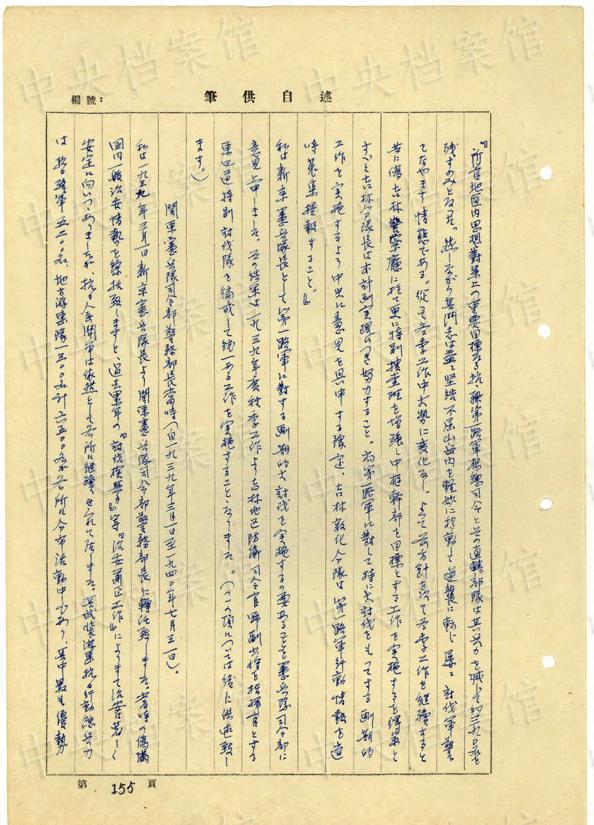 編號：
筆供自述
『所管地区内思想対策上ノ重要目標タル抗聯第一路軍楊靖司令とその直轄部隊は其の勢力を減し約三九〇名を
残すのみとなった。然しながら其闘志は益々堅結不屈山岳内を軽快に移動して逆襲に転じ、屡々討伐軍警
をなやます情態である。従って冬季工作中大勢に変化なし、よって前方針に従って冬季工作を継続すると
共に偽吉林警察廳に於て更に特別捜査班を増強し中枢幹部を目標とする工作を実施する
吉林分隊長は本計画実現につき努力すること。第一路軍に対して特に大討伐をもってする画期的
工作を実施するよう中央に意見を具申する豫定、吉林敦化分隊は第一路軍行動情報を適
時蒐集提報すること。』
私は新京憲兵隊長として第一路軍に対する画期的大討伐を実施するの要あることを憲兵隊司令部に
意見上申しました。其の結果は一九三九年度秋季工作より吉林地区防衛司令官野副少将を指揮官とする
東四道特別討伐隊を編成して統一ある工作を実施することとなりました。（この項については後に供述致し
ます。）
関東憲兵隊司令部警務部長當時（自一九三九年三月一日至一九四〇年七月三一日）。
私は一九三九年三月一日新京憲兵隊長より関東憲兵隊司令部警務部長に轉任致しました。當時の偽満
国内一般治安情勢を綜括致しますと、過去累年の『討伐検挙』等『治安粛正工作』によりまして治安は著しく
安定に向いつつありましたが、抗日人民闘争は依然として各所に継続せられて居りました。其武装游撃抗日行動総勢力
は抗日聯軍五二〇〇名、地方游撃隊一三〇〇名計六五〇〇名が各所に分布活動中であり、其中最も優勢
第 155 頁